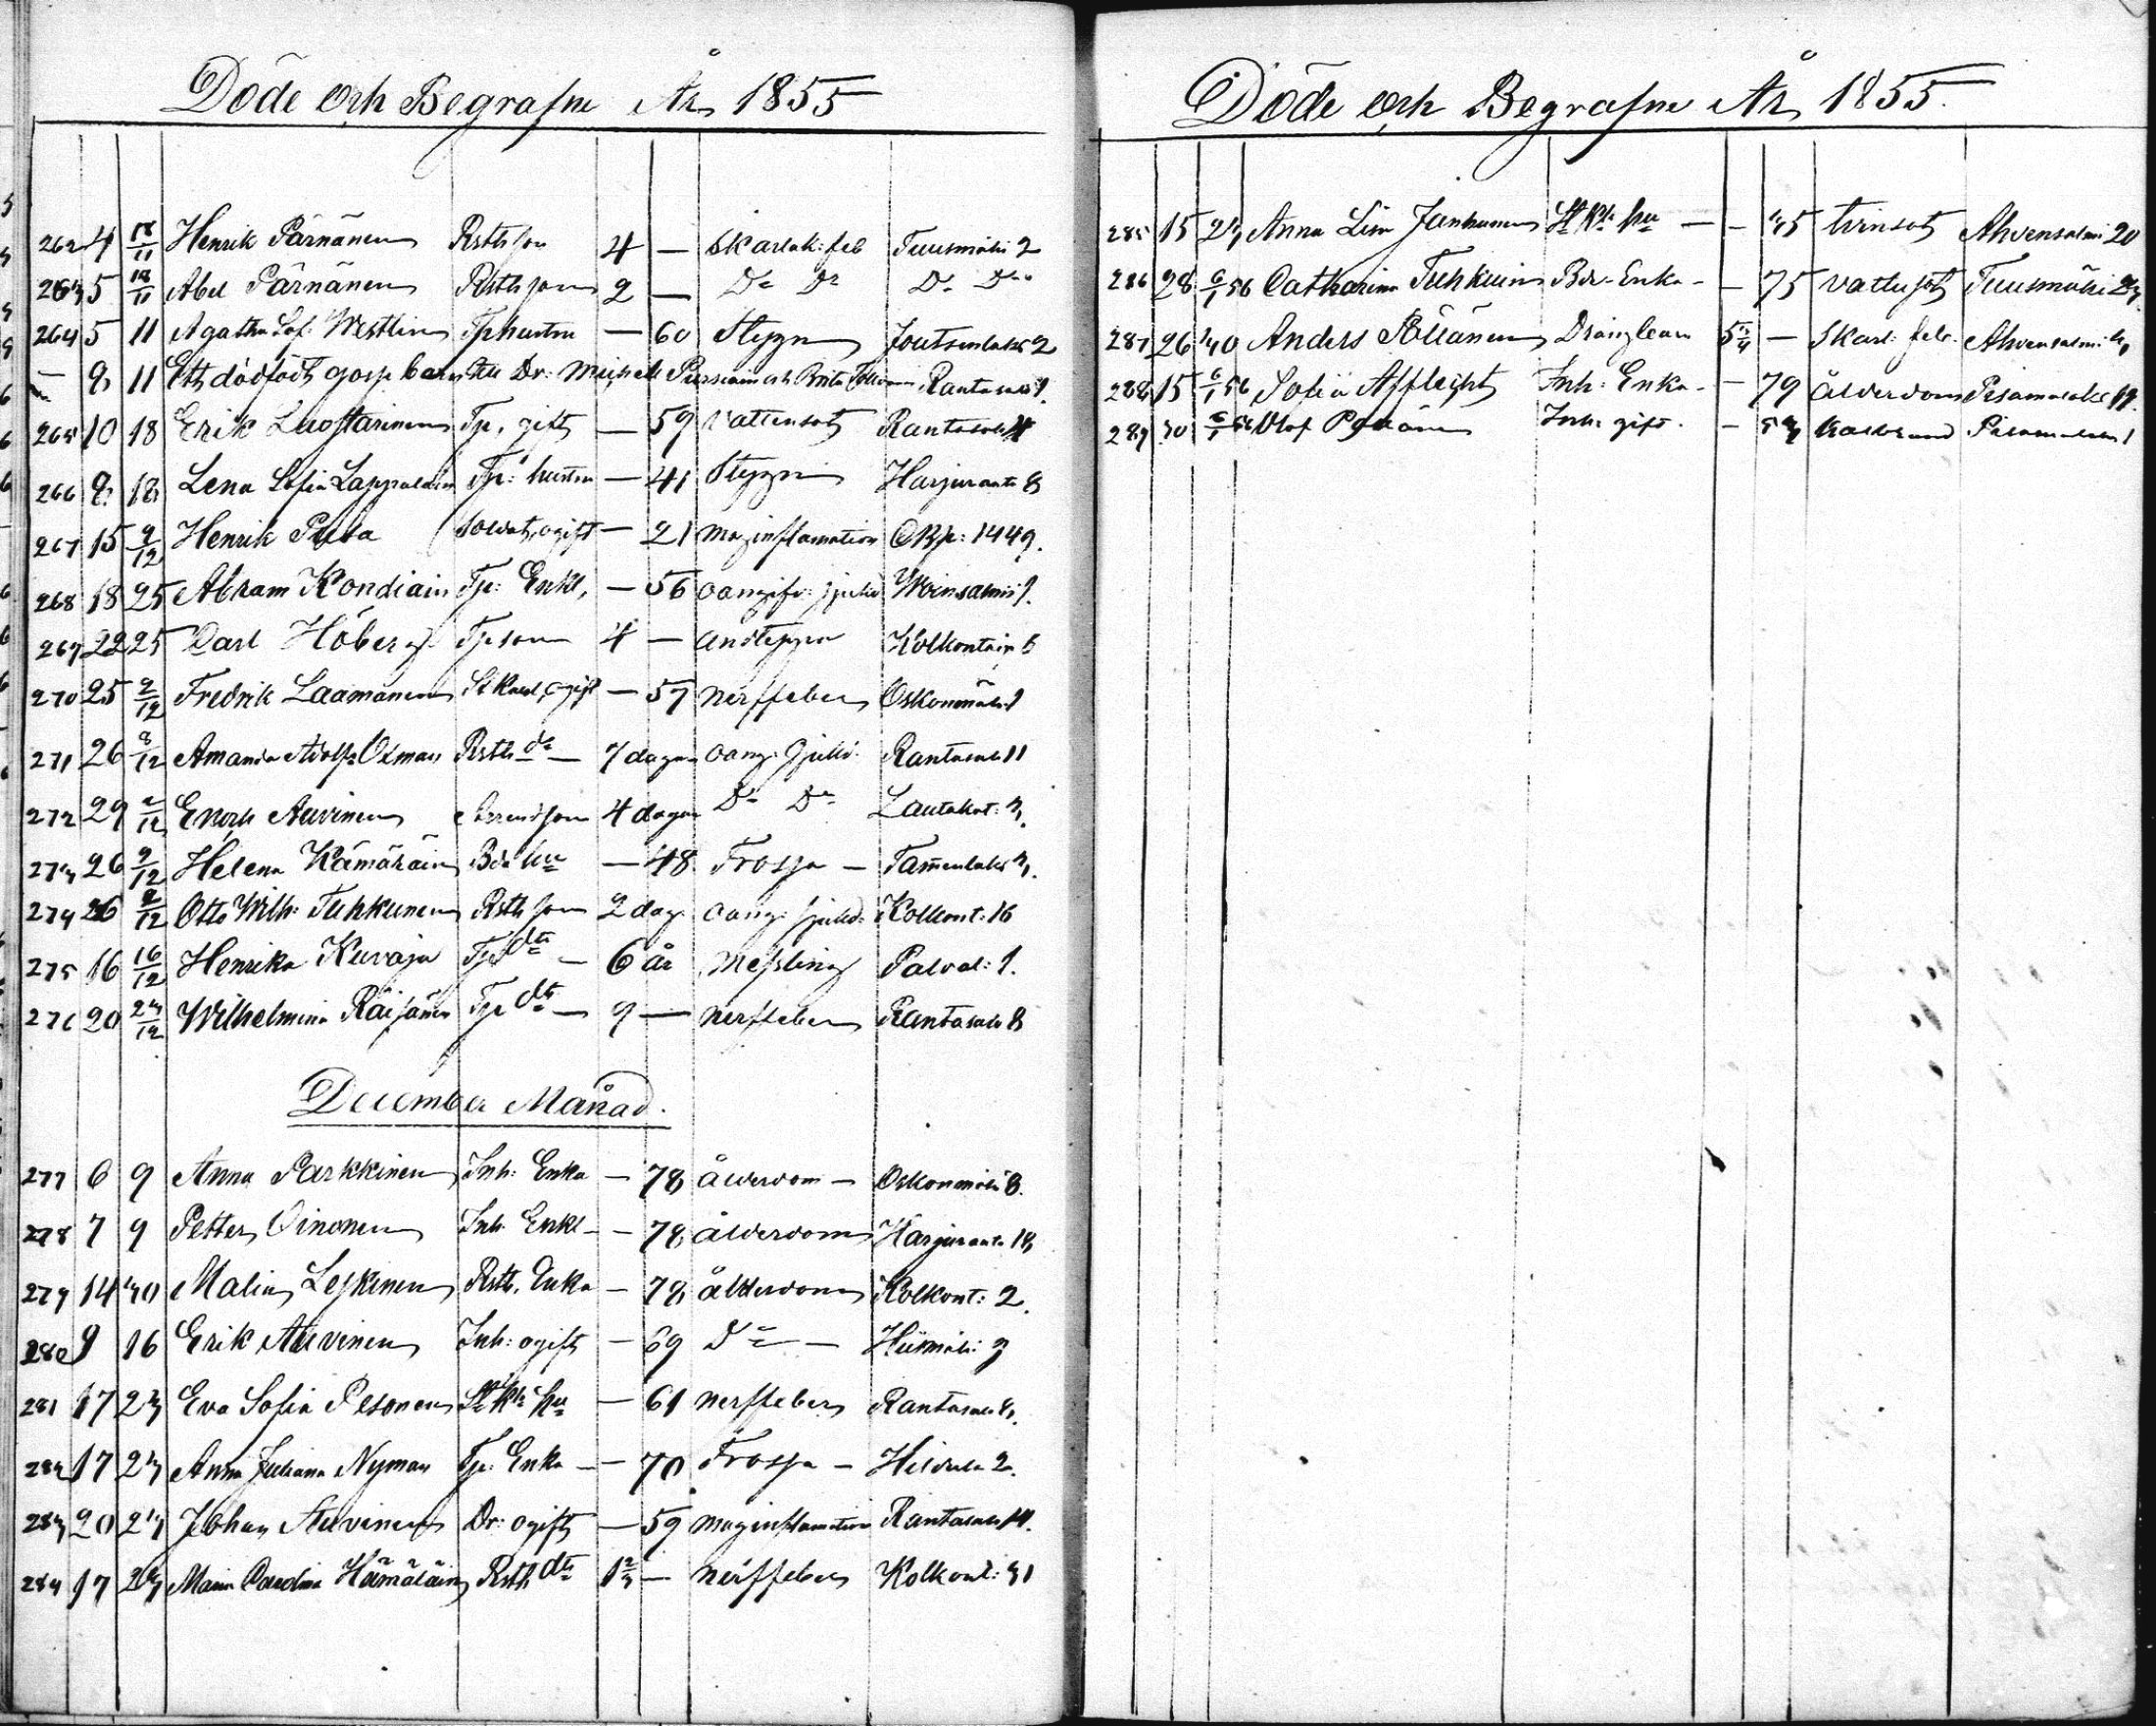 Döde och Begrafne År 1855
262 4 18/11 Henrik Pärnänen Rsth son 4 — Skarlak: feb Tuusmäki 2
263 5 18/11 Abel Pärnänen Rsth son 2 — Do Do Do Do
264 5 11 Agatha Sof. Westlin Tp hustru — 60 Styng Joutsenlaks 2
— 8 11 Ett dödfödt gosse barn till Dr: Michel och Brita Rantasalo 1.
265 10 18 Erik Luostarinen Tp, gift — 59 Vattensot Rantasalo 4
266 8 18 Lena Sofia Lappalain Tp: hustru — 41 Styng Harjuranta 8
267 15 2/12 Henrik Puta Soldat, ogift — 21 maginflamation OBp: 1449.
268 18 25 Abram Kondiain Tp: Enkl, — 56 oangifv: sjukd 1.
269 22 25 Carl Höberg Tp son 4 — andtäppa Kolkontaip 6
270 25 2/12 Fredrik Laamanen St karl, ogift — 57 nerffeber Oskonmäki 1
271 26 8/12 Amanda Adolfa Öhman Rsth dr — 7 dagar oang: sjukd. Rantasalo 11
272 29 2/12 Enoch Auvinen son 4 dagar Do Do Lautakot: 3.
273 26 2/12 Helena Hämäläin Bde hu — 48 Frossa — Tammenlaks 3.
274 26 2/12 Otto Wilh: Tuhkunen Rsth son 2 dag. oang: sjukd: Kolkont: 16
275 16 16/12 Henrika Kuvaja Tp dtr — 6 år Messling Palval: 1.
276 20 23/12 Wilhelmina Räisänen Tp dtr — 9 — nerffeber Rantasalo 8
December Månad.
277 6 9 Anna Parkkinen Inh: Enka — 78 ålderdom — Oskonmäki 8.
278 7 9 Petter Oinonen Inh Enkl — 78 ålderdom Harjuranta 18
279 14 30 Malin Leskinen Rsth. Enka — 78 ålderdom Kolkont: 2.
280 9 16 Erik Auvinen Inh: ogift — 69 Do — Hiismäki: 9
281 17 23 Eva Sofia Pesonen St kls hu — 61 nerffeber Rantasalo 8.
282 17 23 Anna Juliana Nyman Tp: Enka — 70 Frossa — Hildula 2.
283 20 23 Johan Auvinen Dr: ogift — 59 maginflamation Rantasalo 14.
284 17 23 Maria Carolina Hämäläin Rsth dtr 1 2/3 — nerffeber Kolkont: 31
Döde och Begrafne År 1855.
285 15 23 Anna Lisa Janhunen St kls hu — — 35 tvinsot Ahvensalmi 20
286 28 6/1 56 Catharina Tuhkuin Bde Enka — 75 vattusot Tuusmäki 23
287 26 30 Anders Pöllänen Dräng barn 5 3/4 — Skarl: feb. Ahvensalmi 4
288 15 6/1 56 Sofia Afflecht Inh: Enka — 79 ålderdom Pisamalaks 19.
289 30 6/1 56 Olof Inh: gift. — 53 kallbrand Pisamalaks 1